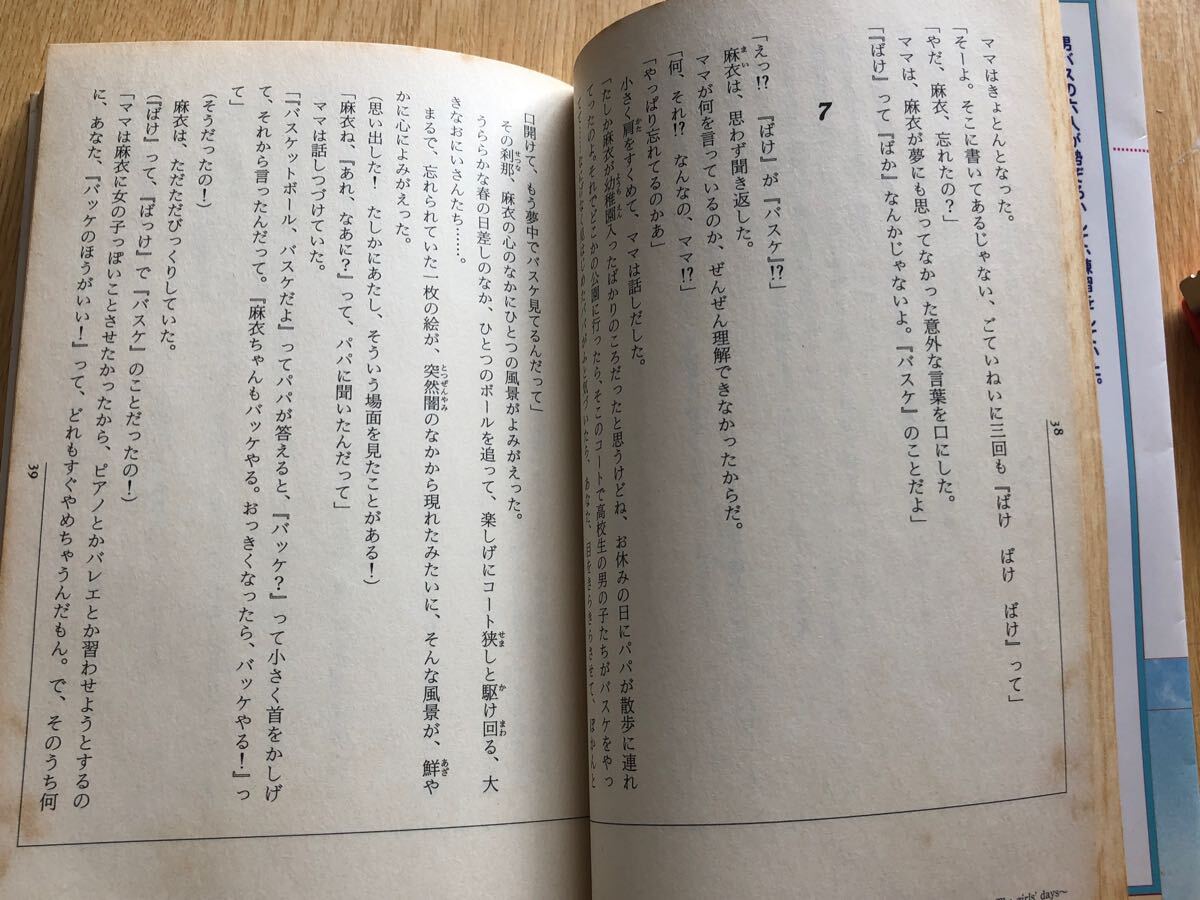 ママはきょとんとなった。
「そーよ。そこに書いてあるじゃない、ごていねいに三回も『ばけ　ばけ　ばけ』って」
「やだ、麻衣、忘れたの？」
ママは、麻衣が夢にも思ってなかった意外な言葉を口にした。
「『ばけ』って『ばか』なんかじゃないよ。『バスケ』のことだよ」
7
「えっ!?　『ばけ』が『バスケ』!?」
麻衣は、思わず聞き返した。
ママが何を言っているのか、ぜんぜん理解できなかったからだ。
「何、それ!?　なんなの、ママ!?」
「やっぱり忘れてるのかあ」
小さく肩をすくめて、ママは話しだした。
「たしか麻衣が幼稚園入ったばかりのころだったと思うけどね、お休みの日にパパが散歩に連れ
てったのよ。それでどこかの公園に行ったら、そこのコートで高校生の男の子たちがバスケをやっ
パパがふと気づいたら、あなた、目をきらきらさせて、ぽかんと
38
girls' days～
口開けて、もう夢中でバスケ見てるんだって」
その刹那、麻衣の心のなかにひとつの風景がよみがえった。
うららかな春の日差しのなか、ひとつのボールを追って、楽しげにコート狭しと駆け回る、大
きなおにいさんたち……。
まるで、忘れられていた一枚の絵が、突然闇のなかから現れたみたいに、そんな風景が、鮮や
かに心によみがえった。
（思い出した！　たしかにあたし、そういう場面を見たことがある！）
「麻衣ね、『あれ、なあに？』って、パパに聞いたんだって」
ママは話しつづけていた。
「『バスケットボール、バスケだよ』ってパパが答えると、『バッケ？』って小さく首をかしげ
て、それから言ったんだって。『麻衣ちゃんもバッケやる。おっきくなったら、バッケやる！』っ
て」
（そうだったの！）
麻衣は、ただただびっくりしていた。
（『ばけ』って、『ばっけ』で『バスケ』のことだったの！）
「ママは麻衣に女の子っぽいことさせたかったから、ピアノとかバレエとか習わせようとするの
に、あなた、『バッケのほうがいい！』って、どれもすぐやめちゃうんだもん。で、そのうち何
39